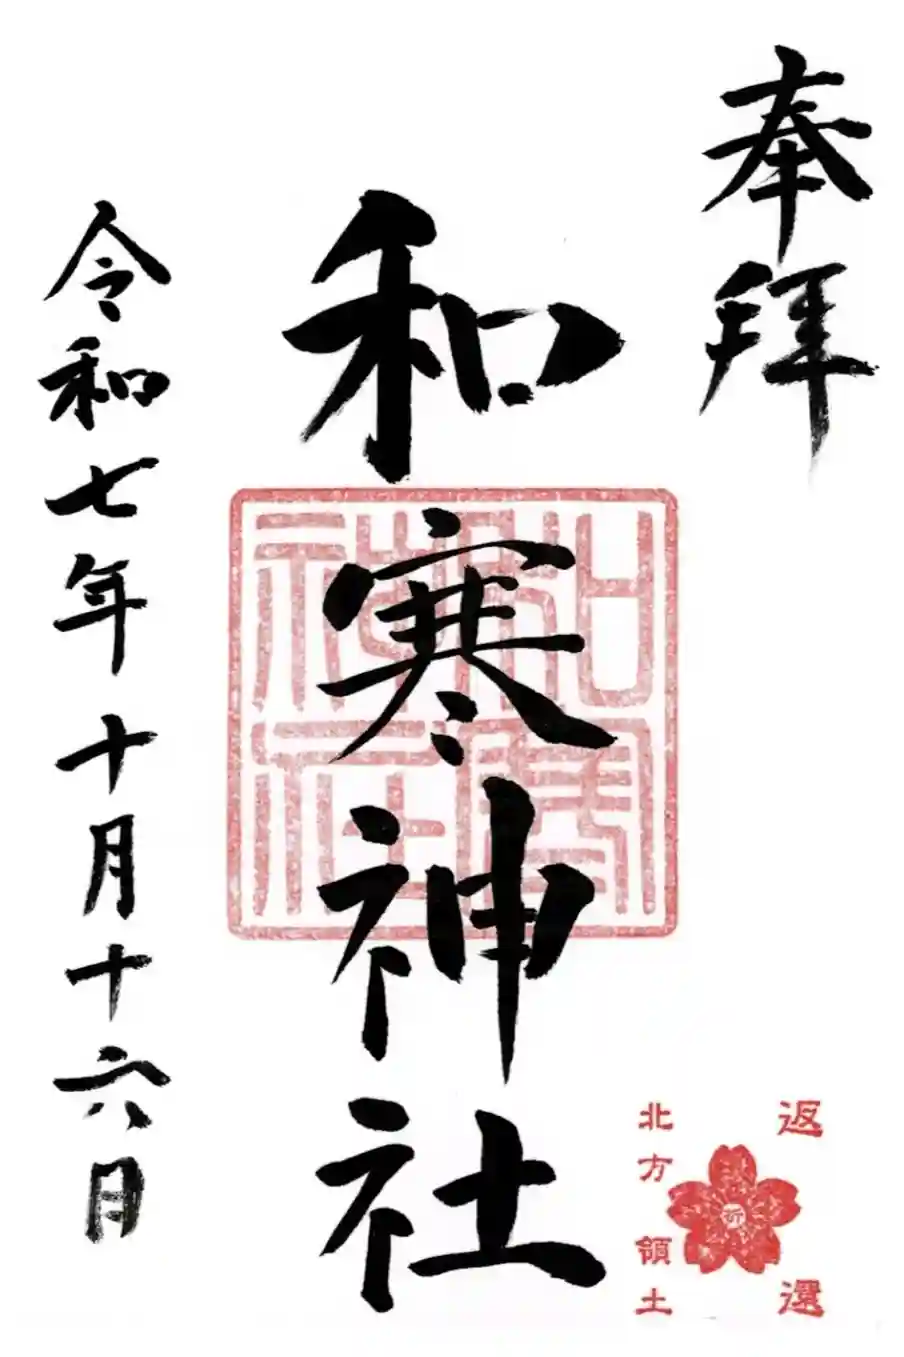 奉拝
和寒神社
和寒
神社
令和七年十月十六日
返還
祈
北方領土